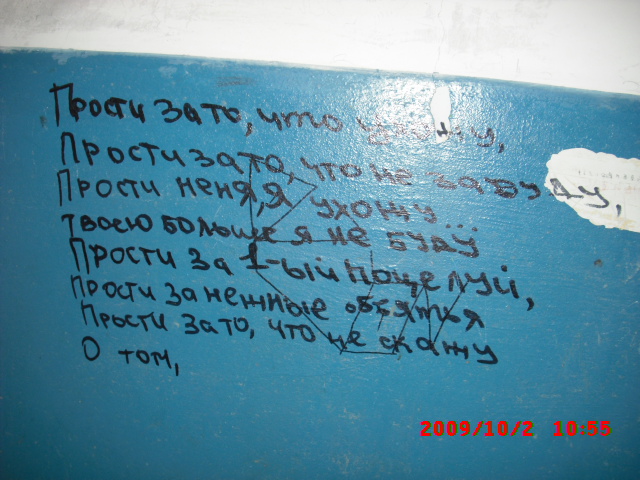 Прости за то, что ухожу,
Прости за то, что не забуду,
Прости меня, я ухожу...
твоею больше я не буду
Прости за 1-ый поцелуй,
Прости за нежные объятья
Прости за то, что не скажу
О том,
2009/10/2 10:55